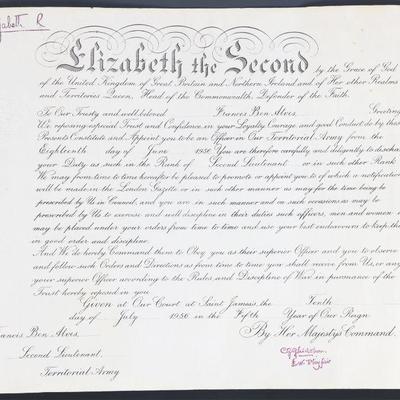 Elizabeth R
Elizabeth the Second by the Grace of God
of the United Kingdom of Great Britain and Northern Ireland and of Her other Realms
and Territories Queen, Head of the Commonwealth, Defender of the Faith.
To Our Trusty and well beloved Francis Ben Alves, Greeting
We reposing especial Trust and Confidence in your Loyalty Courage and good Conduct do by these
Presents Constitute and Appoint you to be an Officer in Our Territorial Army from the
Eighteenth day of June 1956 You are therefore carefully and diligently to discharge
your Duty as such in the Rank of Second Lieutenant or in such other Rank
We may from time to time hereafter be pleased to promote or appoint you to, of which a notification
will be made in the London Gazette or in such other manner as may for the time being be
prescribed by Us in Council, and you are in such manner and on such occasions as may be
prescribed by Us to exercise and well discipline in their duties such officers, men and women
may be placed under your orders from time to time and use your best endeavours to keep them
in good order and discipline.
And We do hereby Command them to Obey you as their superior Officer and you to observe
and follow such Orders and Directions as from time to time you shall receive from Us, or any
your superior Officer according to the Rules and Discipline of War in pursuance of the
Trust hereby reposed in you
Given at Our Court at Saint James's, the Tenth
day of July 1956 in the Fifth Year of Our Reign
Francis Ben Alves, By Her Majesty's Command.
Second Lieutenant,
Territorial Army